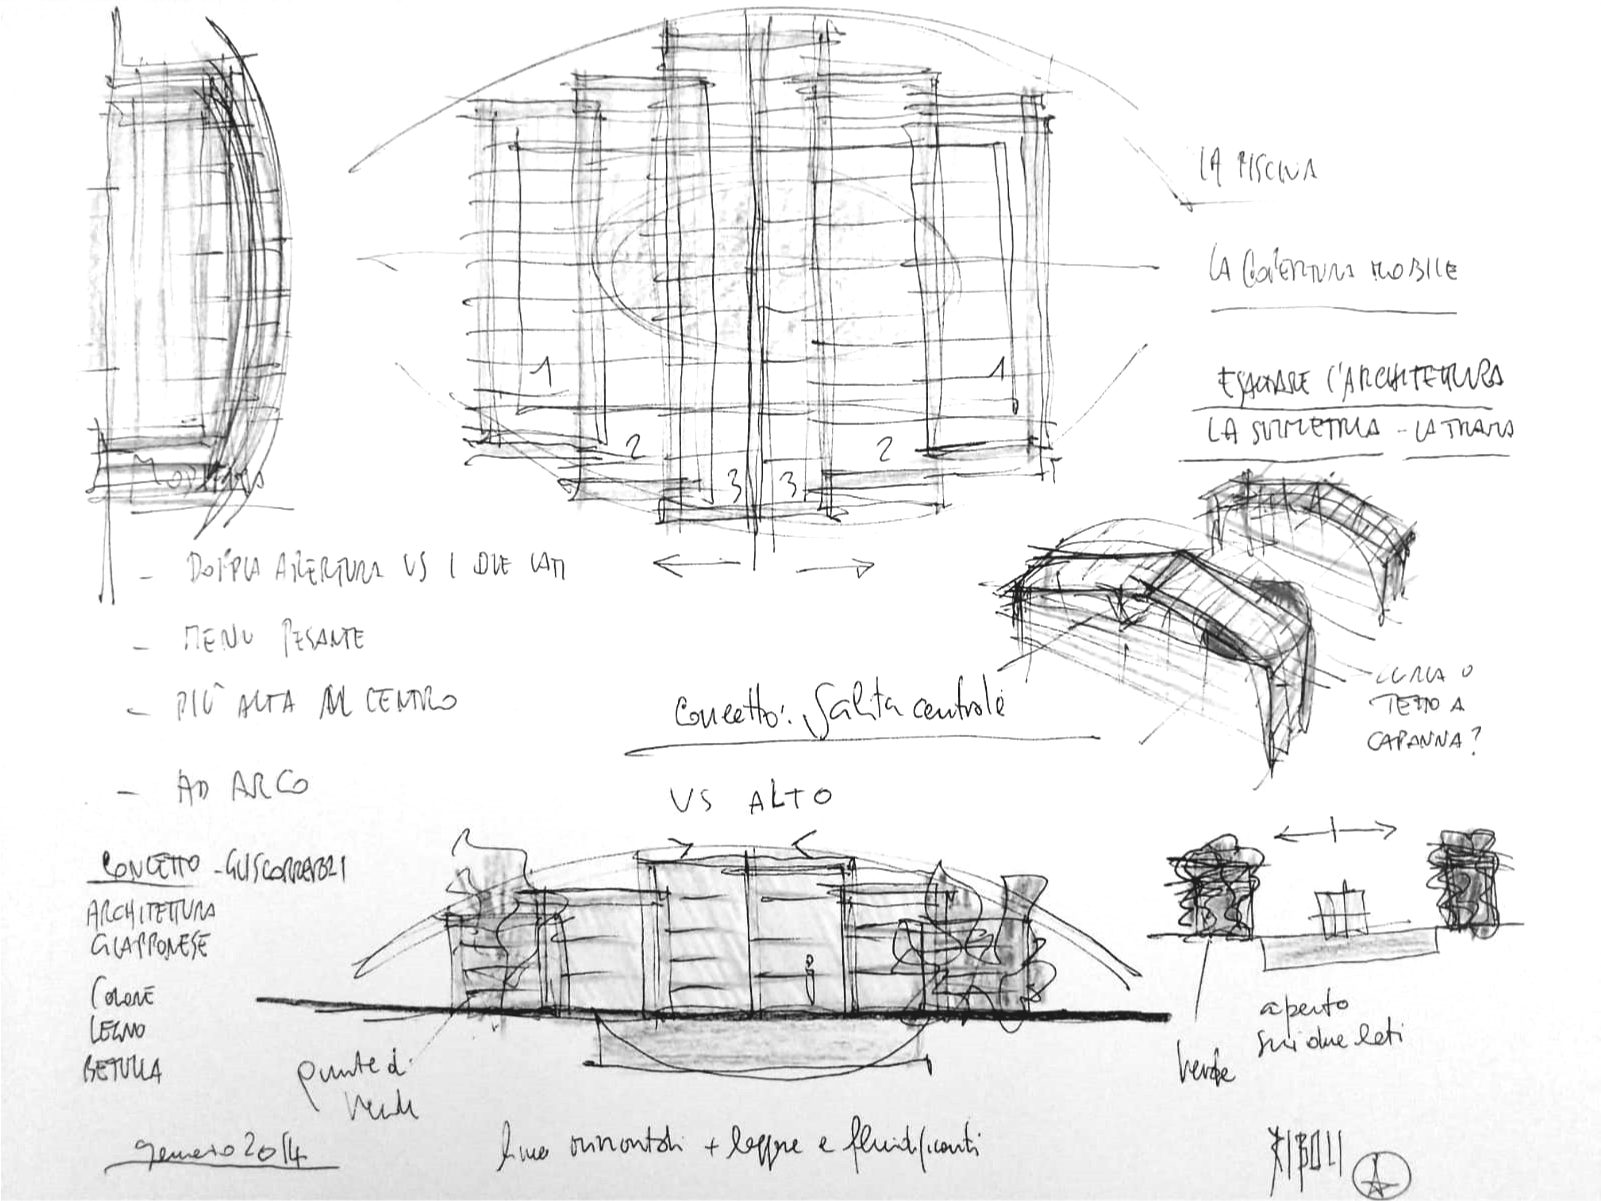 LA PISCINA
LA COPERTURA MOBILE
ESALTARE L'ARCHITETTURA
LA SIMMETRIA - LA TRAMA
1
1
2
2
3
3
- DOPPIA APERTURA VS I DUE LATI
- MENO PESANTE
- PIÙ ALTA AL CENTRO
- AD ARCO
Concetto: Salita centrale
VS ALTO
CURVA O
TETTO A
CAPANNA?
CONCETTO - GLI SCORREVOLI
ARCHITETTURA
GIAPPONESE
COLORE
LEGNO
BETULLA
punte di
verde
aperto
sui due lati
Verde
gennaio 2014
linee orizzontali + leggere e fluidificanti
RIBOLI